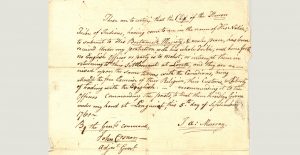 These are to certify that the Chief of the Huron
Tribe of Indians, having come to me in the name of His Nation,
to submit to His Britannick Majesty, and make Peace, has been
received under my protection with his whole Tribe, and henceforth
no English Officer or party is to molest, or interrupt them in
returning to their Settlement at Lorette, and they are re-
ceived upon the same terms with the Canadians, being
allowed the free Exercise of their Religion, their Customs, and Liberty
of trading with the English. recommending it to the
Officers Commanding the posts to treat them kindly. Given
under my hand at Longueuil this 5th day of September
1760.
Ja: Murray
By the Genls Command,
John Cosnan
Adjut Genl